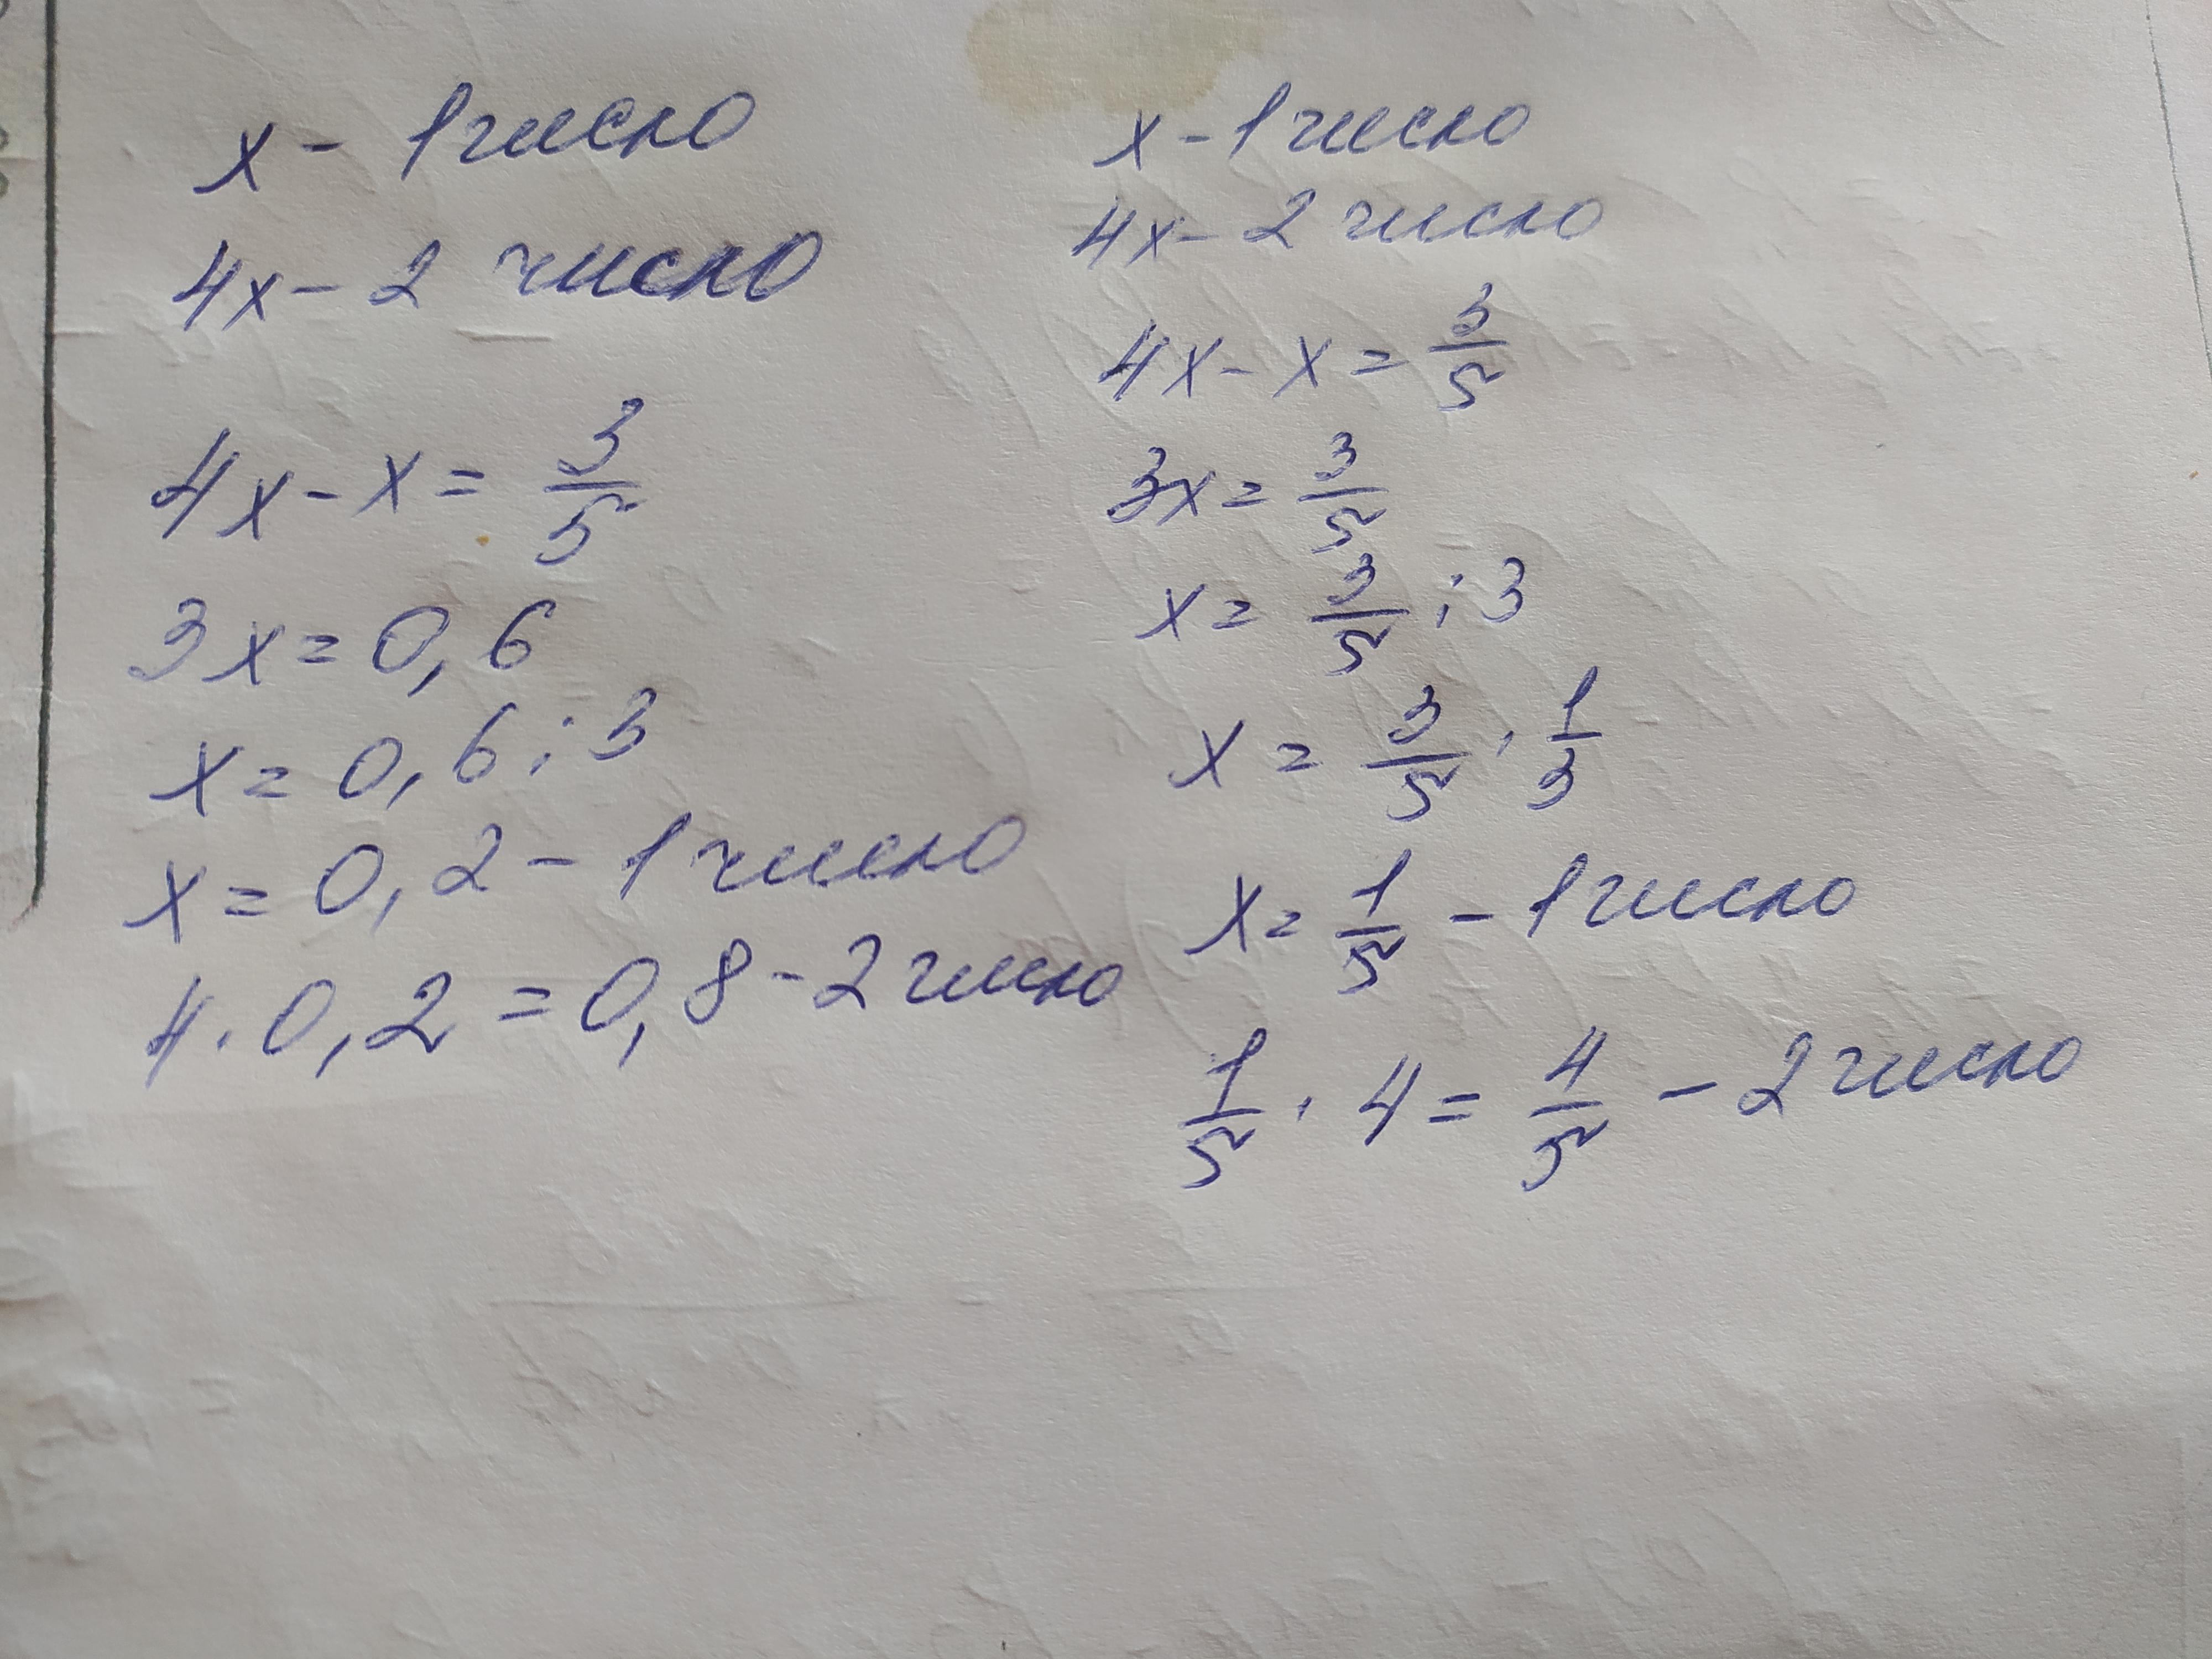 x - 1 число
4x - 2 число
4x - x = 3/5
3x = 0,6
x = 0,6 : 3
x = 0,2 - 1 число
4 · 0,2 = 0,8 - 2 число
x - 1 число
4x - 2 число
4x - x = 3/5
3x = 3/5
x = 3/5 : 3
x = 3/5 · 1/3
x = 1/5 - 1 число
1/5 · 4 = 4/5 - 2 число